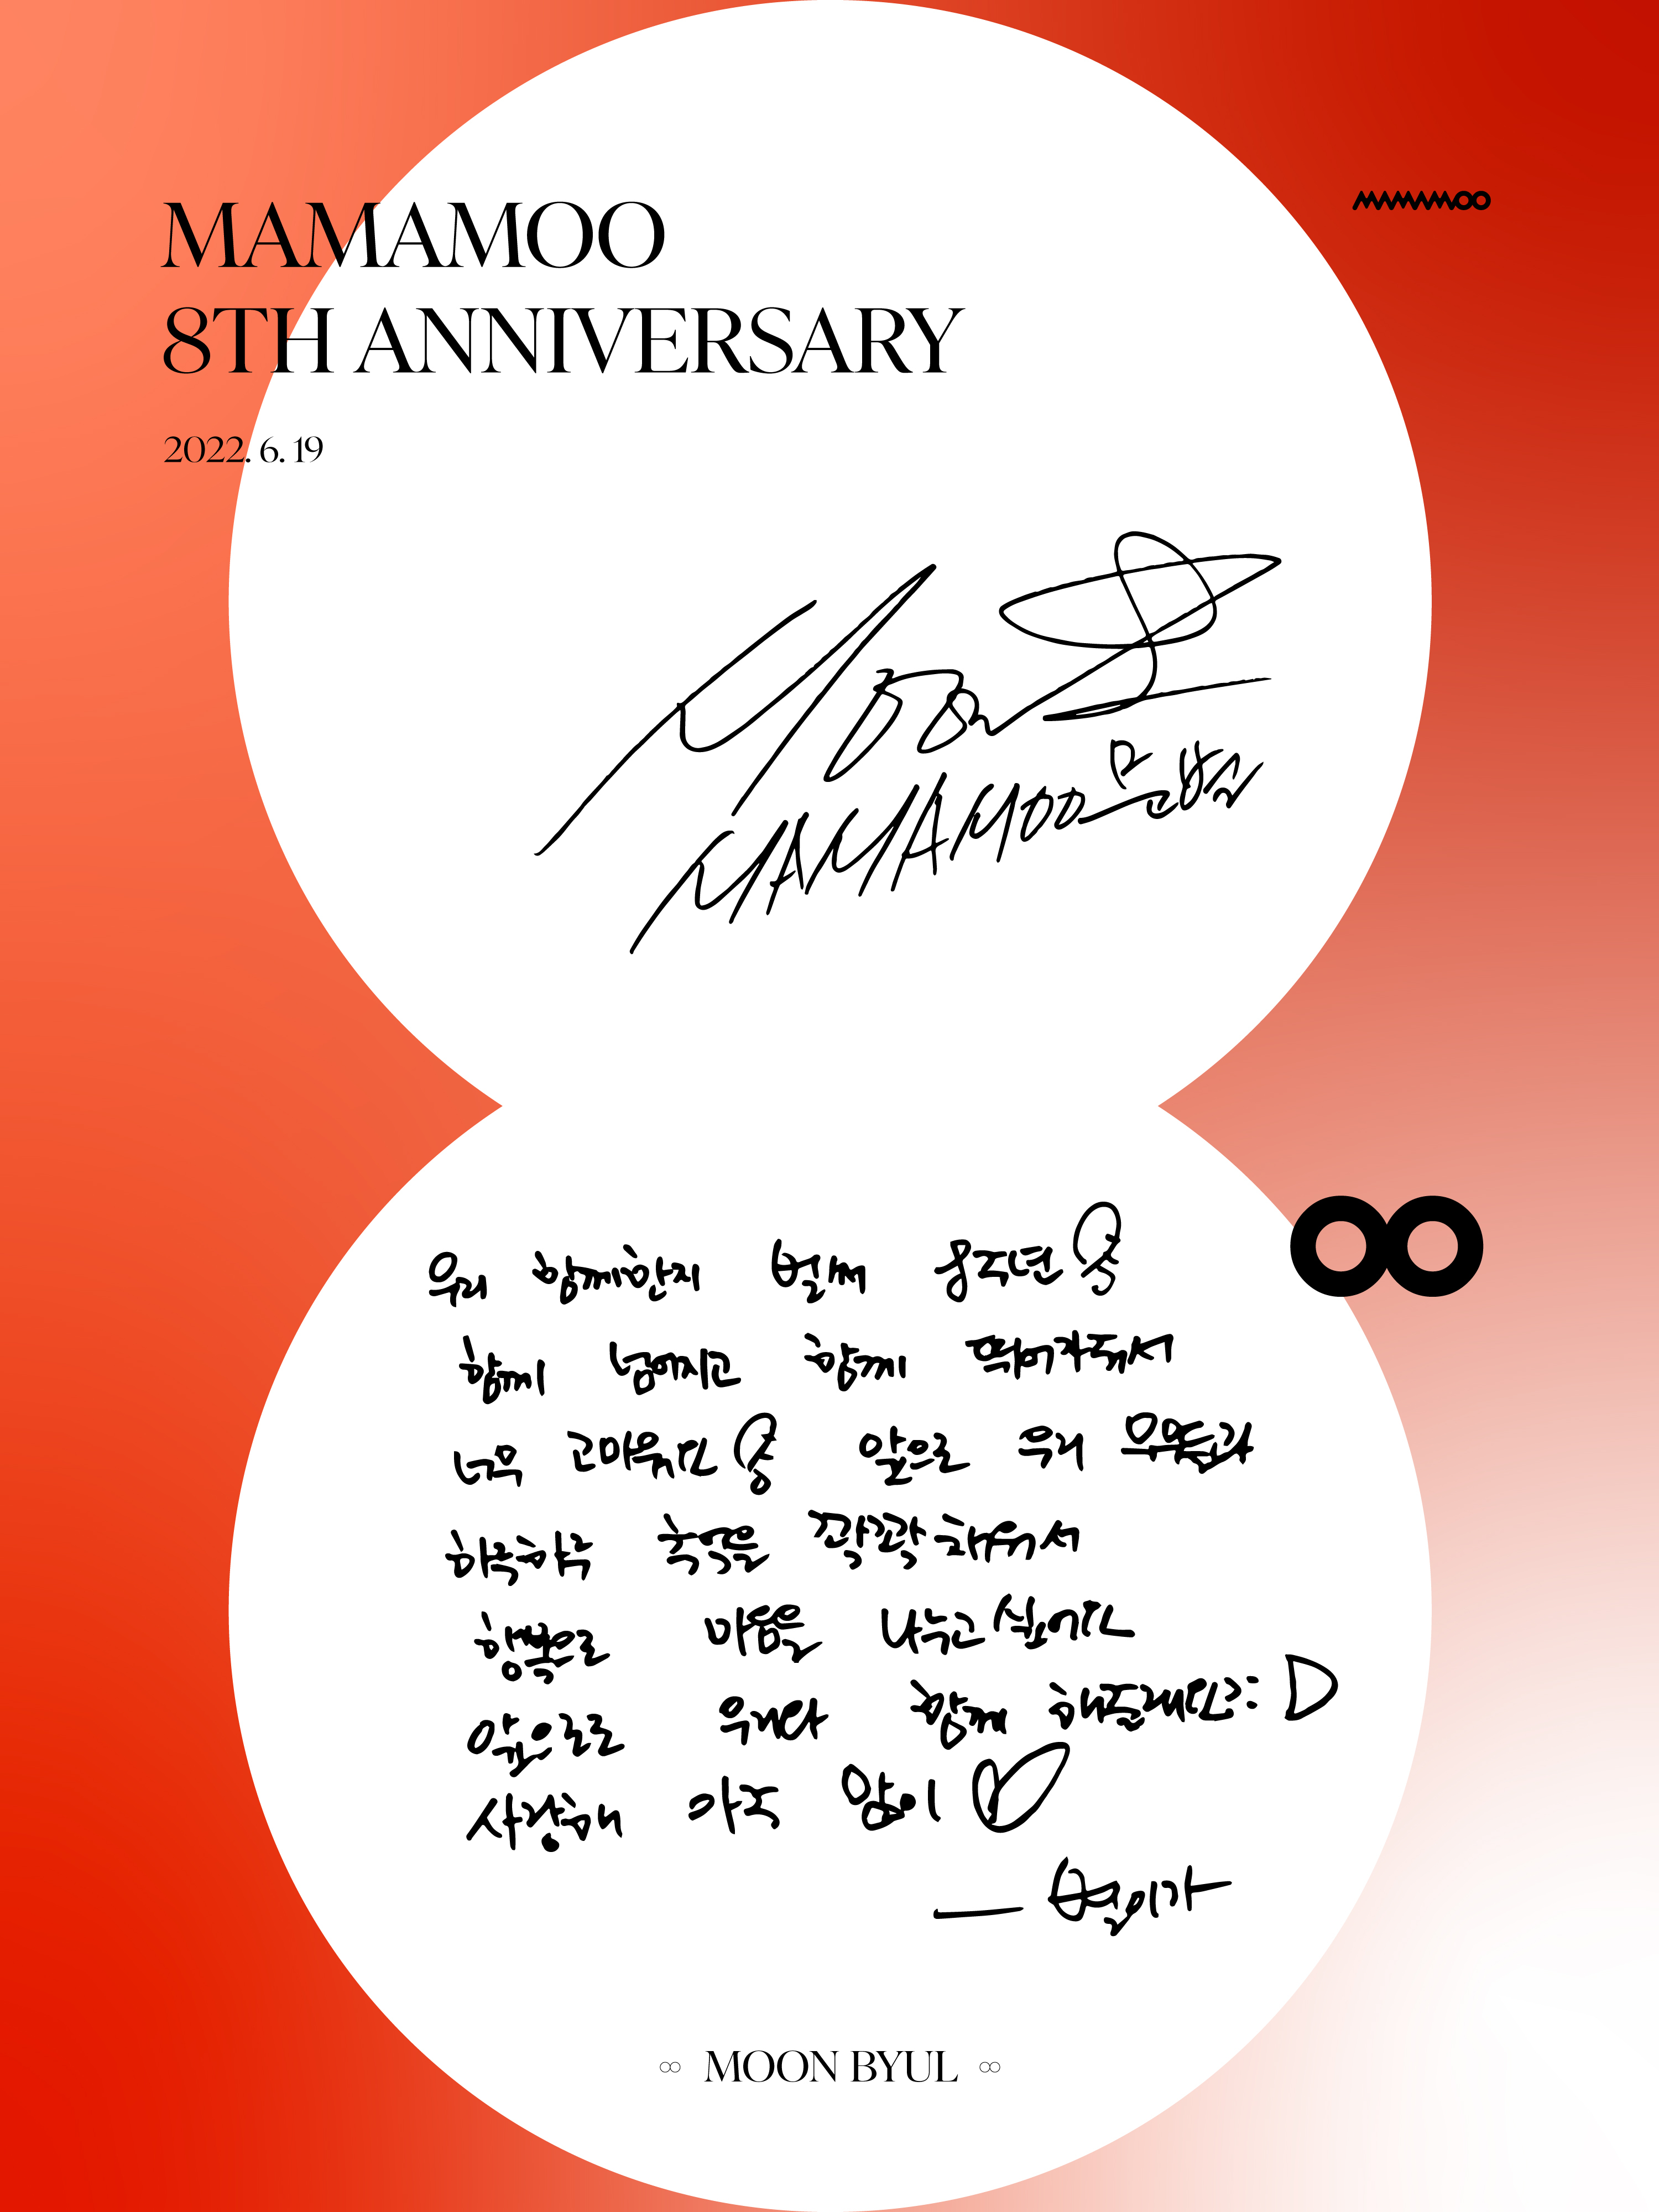 MAMAMOO
MAMAMOO
8TH ANNIVERSARY
2022. 6. 19
Moon
MAMAMOO 문별
우리 함께한지 벌써 8주년
함께 넘어지고 함께 걸어가줘서
너무 고마웁고 앞으로 우리 무무들과
하루하루 추억을 꽉꽉 채워서
행복으로 마음을 나누고 싶어요
앞으로도 우리와 함께 해줄거죠? : D
사랑해 아주 많이 ♡
— 별이가
∞ MOON BYUL ∞